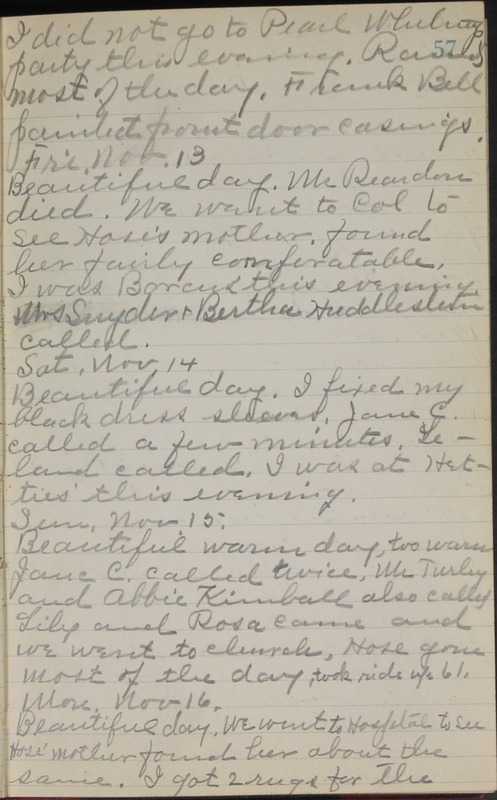 I did not go to Pearl Whitney
57
party this evening. Rained
most of the day. Frank Bell
painted front door casings.
Fri. Nov. 13
Beautiful day. Mr Reardon
died. We went to Col to
see Hose's mother, found
her fairly comfortable.
I was this evening
Mrs Snyder + Bertha Huddlestun
called.
Sat, Nov 14
Beautiful day. I fixed my
black dress sleeves. Jane C.
called a few minutes. Le-
land called. I was at Het-
ties' this evening.
Sun, Nov 15.
Beautiful warm day, too warm
Jane C. called twice, Mr Turley
and Abbie Kimball also called
Lily and Rosa came and
we went to church, Hose gone
most of the day, took ride 61.
Mon, Nov-16.
Beautiful day. We went to Hospital to see
Hose' mother found her about the
same. I got 2 rugs for the